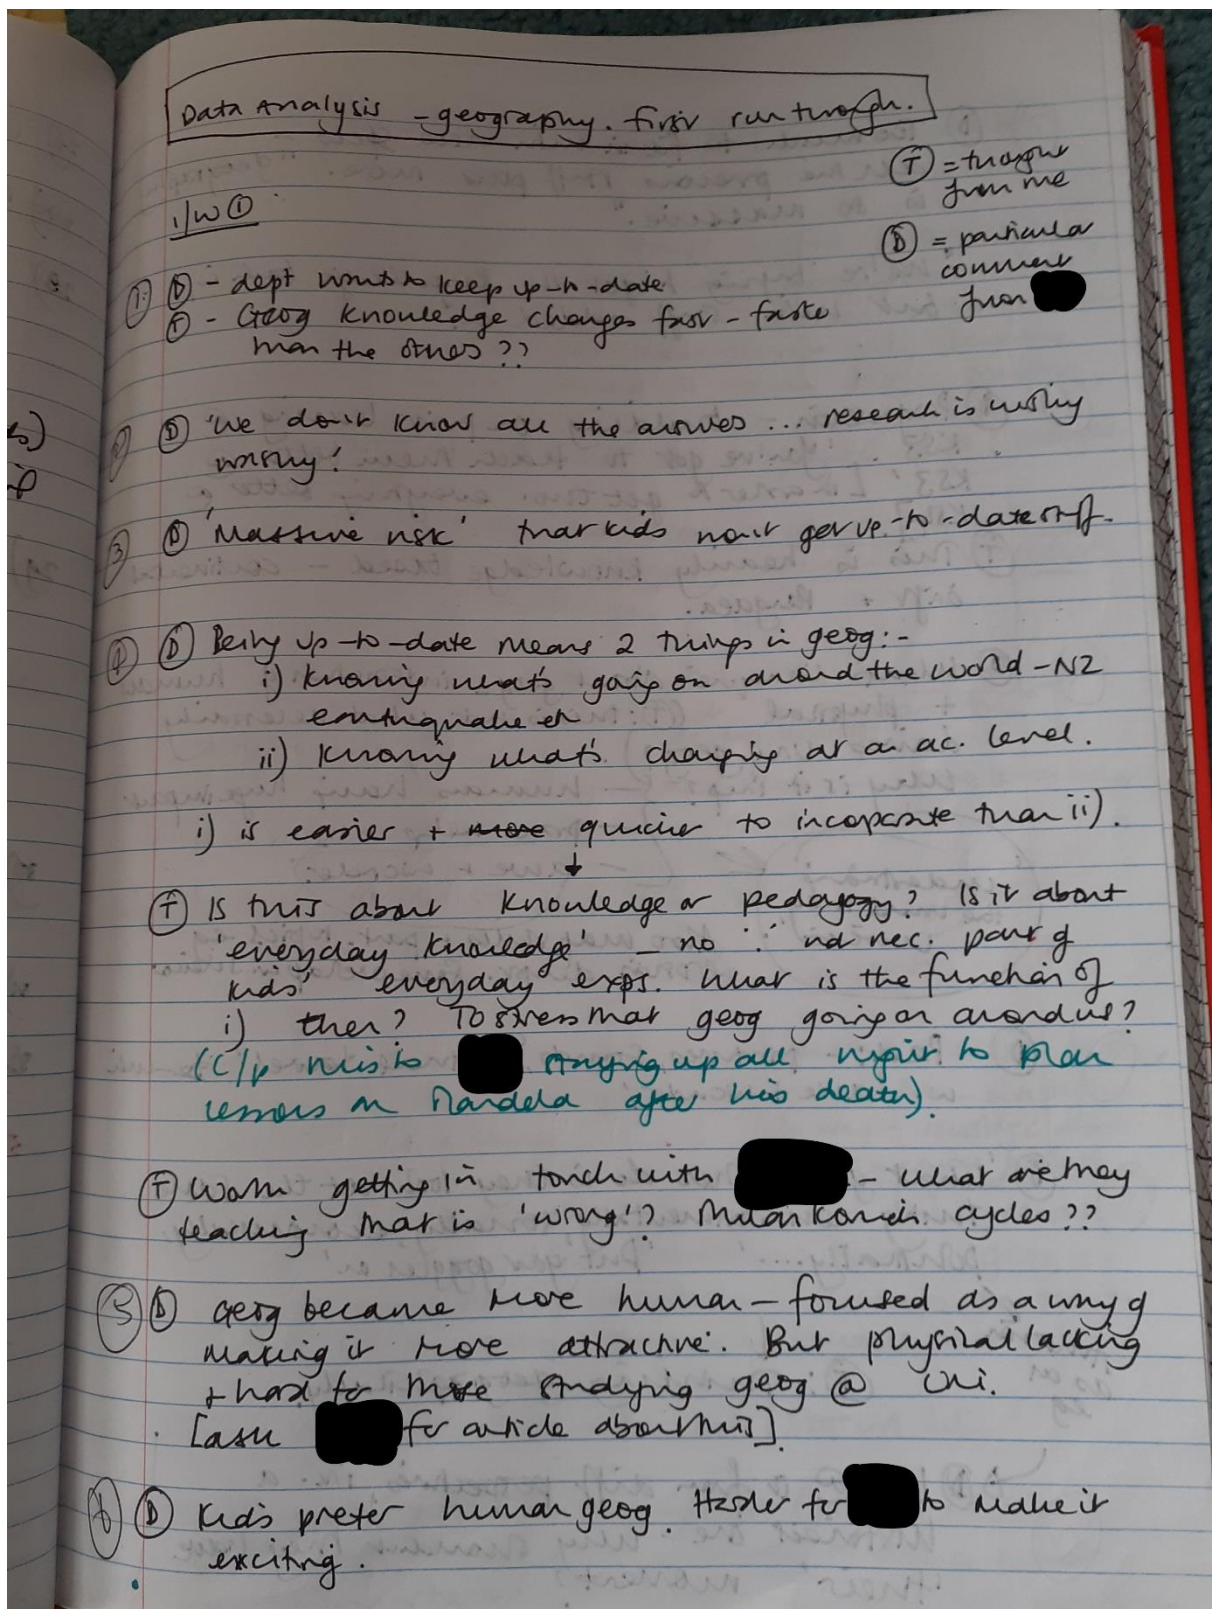 Data Analysis - geography. First run through.
Ⓣ = thought
from me
i/w ①
Ⓓ = particular
comment
from
1. Ⓓ - dept wants to keep up-to-date
Ⓣ - Geog knowledge changes fast - faster
than the others??
2 Ⓓ 'We don't know all the answers ... research is worthy
worthy!
3 Ⓓ 'Massive risk' that kids won't get up-to-date stuff.
4 Ⓓ Being up-to-date means 2 things in geog:-
i) knowing what's going on around the world - NZ
earthquake etc
ii) knowing what's changing at an ac. level.
i) is easier + more quicker to incorporate than ii).
↓
Ⓣ Is this about knowledge or pedagogy? Is it about
'everyday knowledge' - no ∵ not nec. part of
kids' everyday exps. What is the function of
i) then? To stress that geog going on around us?
(C/p this to staying up all night to plan
lessons on Mandela after his death).
Ⓣ Worth getting in touch with - what are they
teaching that is 'wrong'? Milankovich cycles??
5 Ⓓ Geog became more human-focused as a way of
making it more attractive. But physical lacking
+ hard for those studying geog @ uni.
[ask for article about this]
6 Ⓓ Kids prefer human geog. Harder for to make it
exciting.